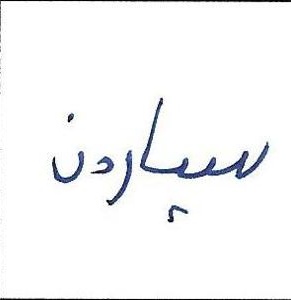 سپاردن